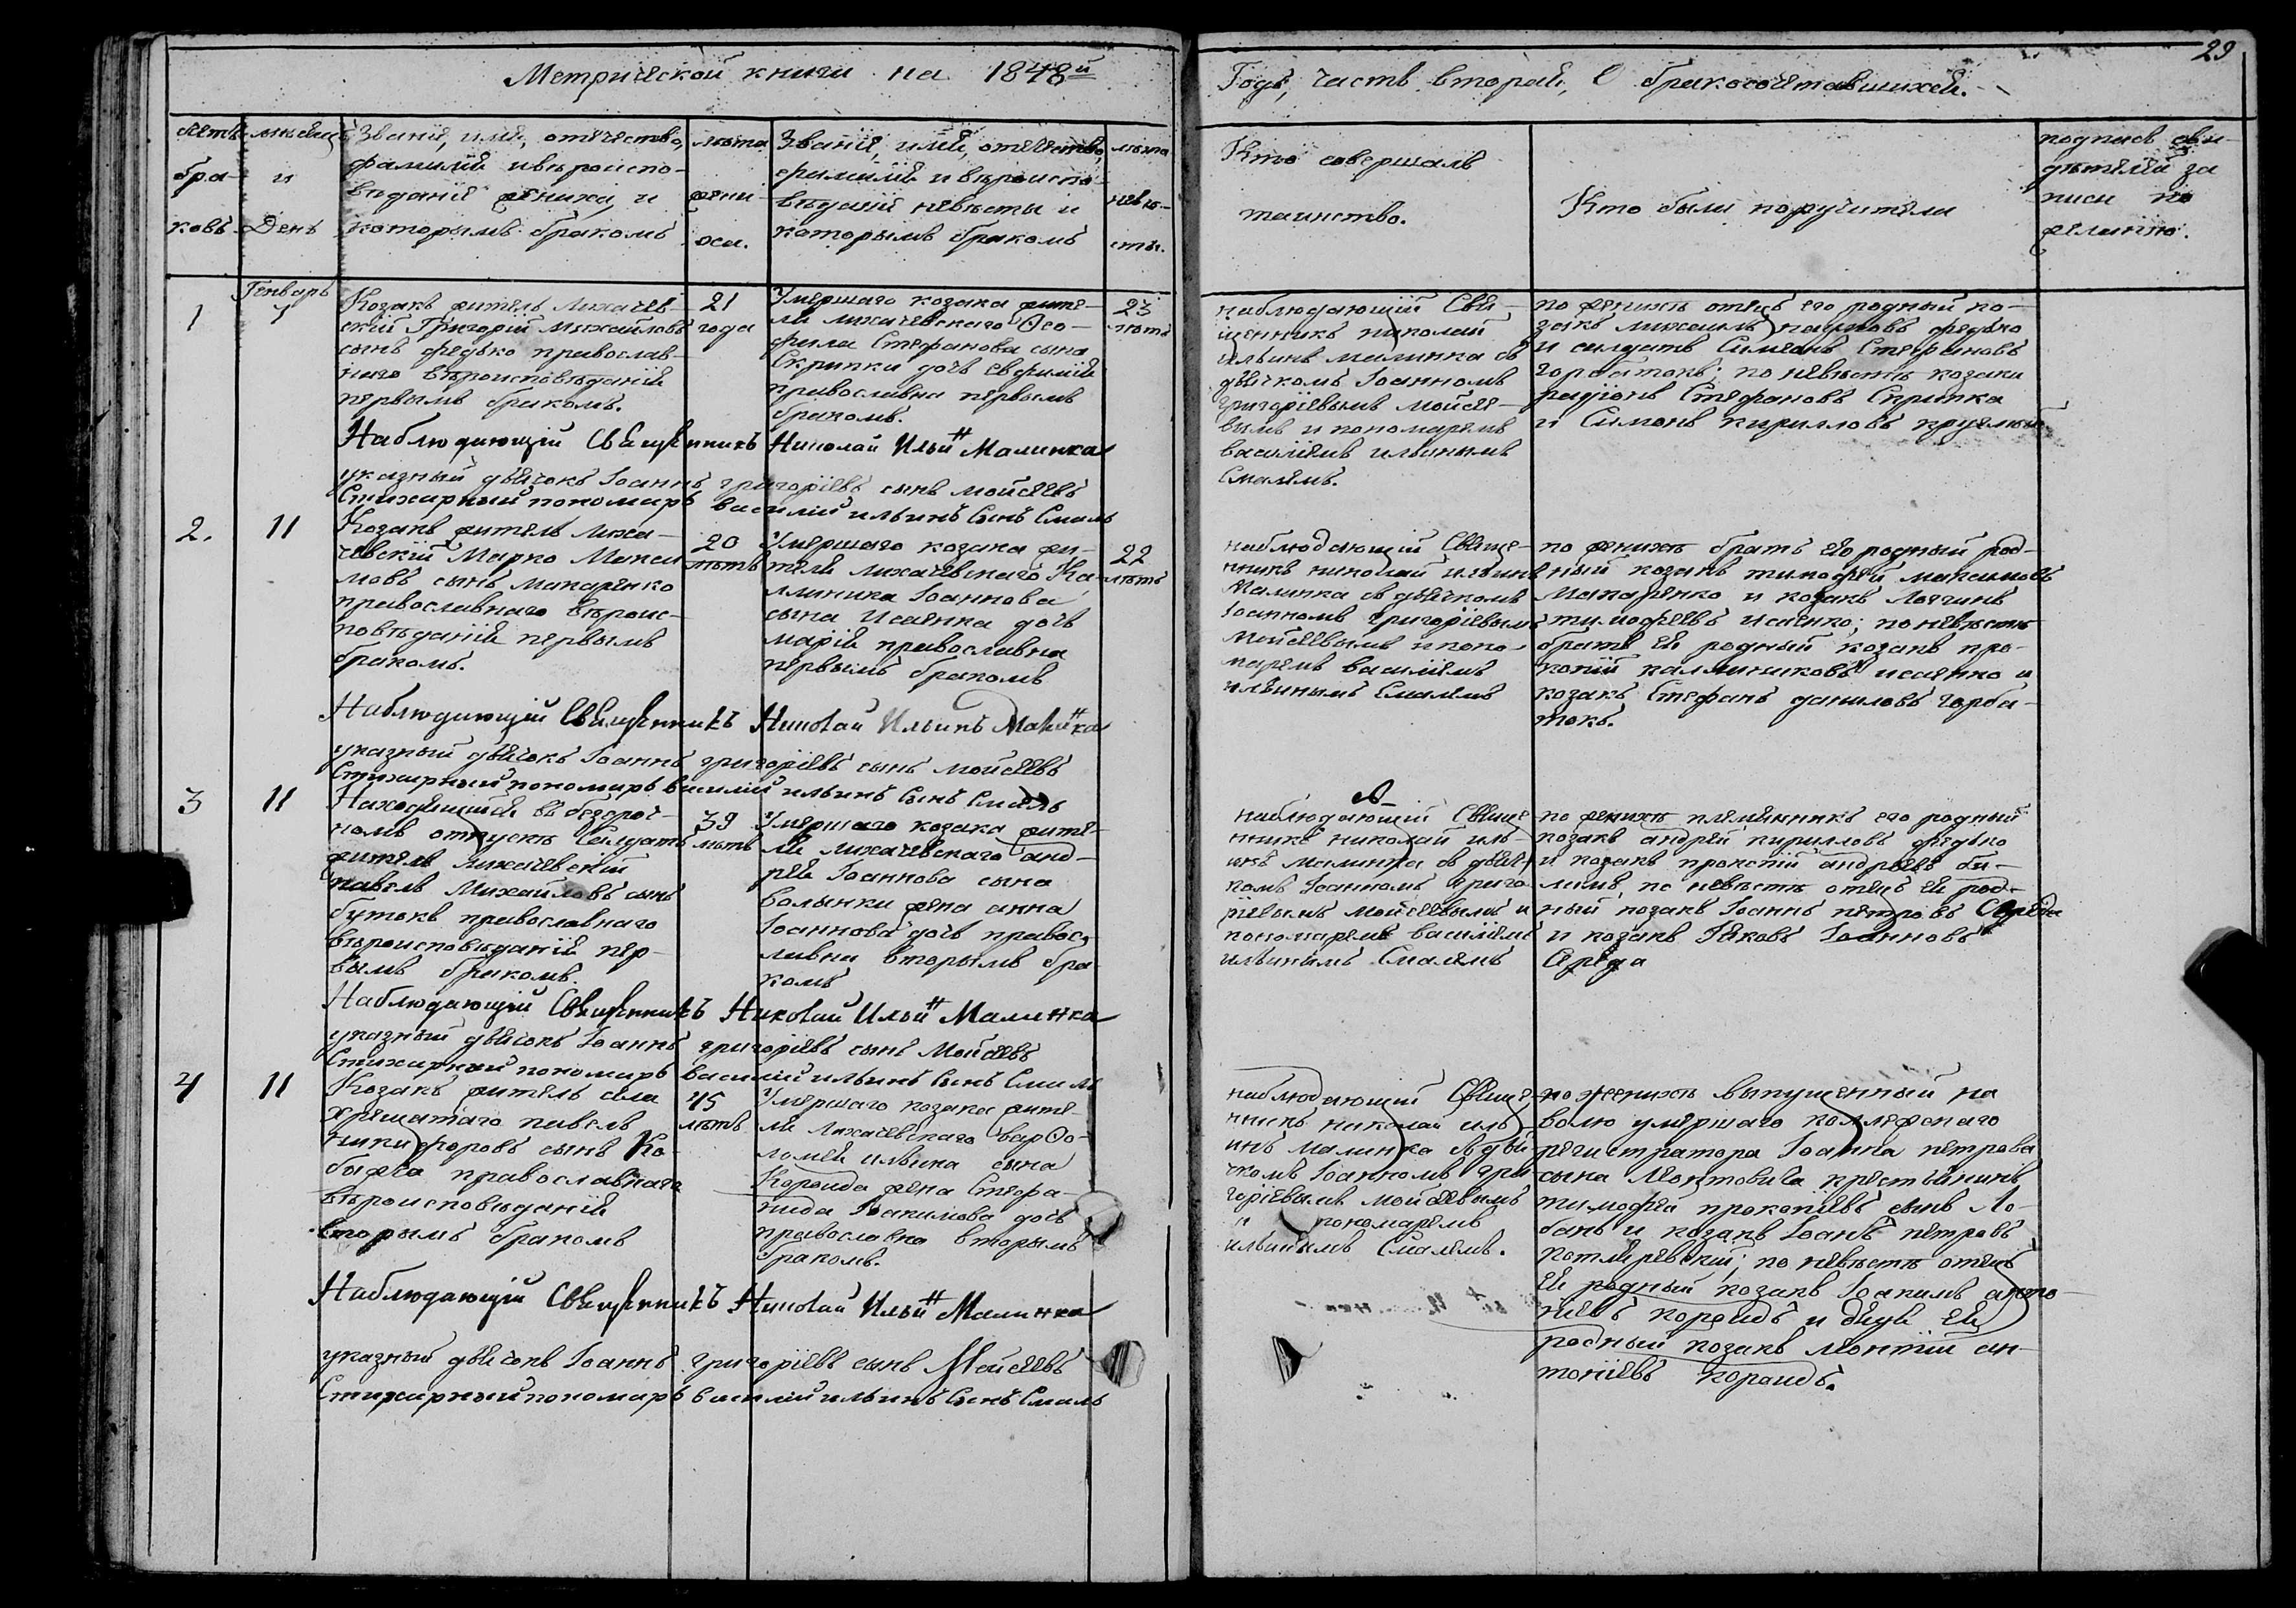 29
Метрической книги на 1848й
Годъ, часть вторая, О бракосочетавшихся.
счетъ
бра-
ковъ
мѣсяцъ
и
День
Званіе, имя, отечество,
фамилія и вѣроиспо-
вѣданіе жениха, и
которымъ бракомъ
лѣта
жени-
ха.
Званіе, имя, отечество,
фамилія и вѣроиспо-
вѣданія невѣсты и
которымъ бракомъ
лѣта
невѣ-
сты.
Кто совершалъ
таинство.
Кто были поручители
подпись сви-
дѣтелей за
писи по
желанію.
1
Генварь
Козакъ житель Лихачев-
скій Григорій Михайловъ
сынъ Федько православ-
наго вѣроисповѣданія
первымъ бракомъ.
21
года
Умершаго козака жите-
ля лихачевскаго Ѳео-
фила Стефанова сына
Скрипки дочь Евфимія
православна первымъ
бракомъ.
23
лѣтъ
наблюдающій Свя-
щенникъ николай
ильинъ малинка съ
дьячкомъ Іоанномъ
григоріевымъ мойсее-
вымъ и пономаремъ
василіемъ ильинымъ
Смалемъ.
по женихѣ отецъ его родный ко-
закъ михаилъ наумовъ федько
и салдатъ Симеонъ Стефановъ
горбатокъ; по невѣстѣ козаки
радіонъ Стефановъ Скрипка
и Симонъ кирилловъ
Наблюдающій Священникъ Николай Ильинъ Малинка
указный дьячокъ Іоаннъ григоріевъ сынъ мойсеевъ
Стихарный пономарь василій ильинъ Сынъ Смаль
2.
11
Козакъ житель лиха-
чевскій Марко Макси-
мовъ сынъ макаренко
православнаго вѣроис-
повѣданія первымъ
бракомъ.
20
лѣтъ
Умершаго козака жи-
теля лихачевскаго Ка-
линика Іоаннова
сына Исаенка дочь
марія православна
первымъ бракомъ
22
лѣтъ
наблюдающій Свяще-
нникъ николай ильинъ
Малинка съ дьячкомъ
Іоанномъ григоріевымъ
мойсеевымъ и поно-
маремъ василіемъ
ильинымъ Смалемъ
по женихѣ братъ его родный род-
ный козакъ тимофей максимовъ
макаренко и козакъ Логинъ
тимофеевъ исаенко; по невѣстѣ
братъ ея родный козакъ про-
копій калиниковъ исаенко и
козакъ Стефанъ даниловъ горба-
токъ.
Наблюдающій Священникъ Николай Ильинъ Малинка
указный дьячокъ Іоаннъ григоріевъ сынъ мойсеевъ
Стихарный пономарь василій ильинъ Сынъ Смаль
3
11
Находящійся въ безсроч-
номъ отпускѣ Салдатъ
житель лихачевскій
павелъ Михайловъ сынъ
бутокъ православнаго
вѣроисповѣданія пер-
вымъ бракомъ.
39
лѣтъ
Умершаго козака жите-
ля лихачевскаго анд-
рея Іоаннова сына
Волынки жена анна
Іоаннова дочь правос-
лавна вторымъ бра-
комъ
наблюдающій Свяще-
нникъ николай иль-
инъ малинка съ дьяч-
комъ Іоанномъ григо-
ріевымъ мойсеевымъ и
пономаремъ василіемъ
ильинымъ Смалемъ
по женихѣ племянникъ его родный
козакъ андрей кирилловъ федько
и козакъ прокопій андреевъ
по невѣстѣ отецъ ея род-
ный козакъ Іоаннъ петровъ Середа
и козакъ Іяковъ Іоанновъ
Середа
Наблюдающій Священникъ Николай Ильинъ Малинка
указный дьячокъ Іоаннъ григоріевъ сынъ Мойсеевъ
Стихарный пономарь василій ильинъ Сынъ Смаль
4
11
Козакъ житель села
хрещатаго павелъ
никифоровъ сынъ Ко-
быжча православнаго
вѣроисповѣданія
вторымъ бракомъ
45
лѣтъ
Умершаго козака жите-
ля лихачевскаго варѳо-
ломея ильина сына
Кораида жена Стефа-
нида Іоакимова дочь
православна вторымъ
бракомъ.
наблюдающій Свяще-
нникъ николай иль-
инъ малинка съ дья-
чкомъ Іоанномъ гри-
горіевымъ мойсеевымъ
и пономаремъ
ильинымъ Смалемъ.
по женихѣ выпущенный на
волю умершаго коллежскаго
регистратора Іоанна петрова
сына Леонтовича крестьянинъ
тимофей прокопіевъ сынъ Ло-
бань и козакъ Іоанъ петровъ
котляревскій; по невѣстѣ отецъ
ея родный козакъ Іоакимъ анто-
ніевъ кораидъ и дядя ея
родный козакъ леонтій ан-
тоніевъ кораидъ.
Наблюдающій Священникъ Николай Ильинъ Малинка
указный дьячокъ Іоаннъ григоріевъ сынъ Мойсеевъ
Стихарный пономарь василій ильинъ Сынъ Смаль